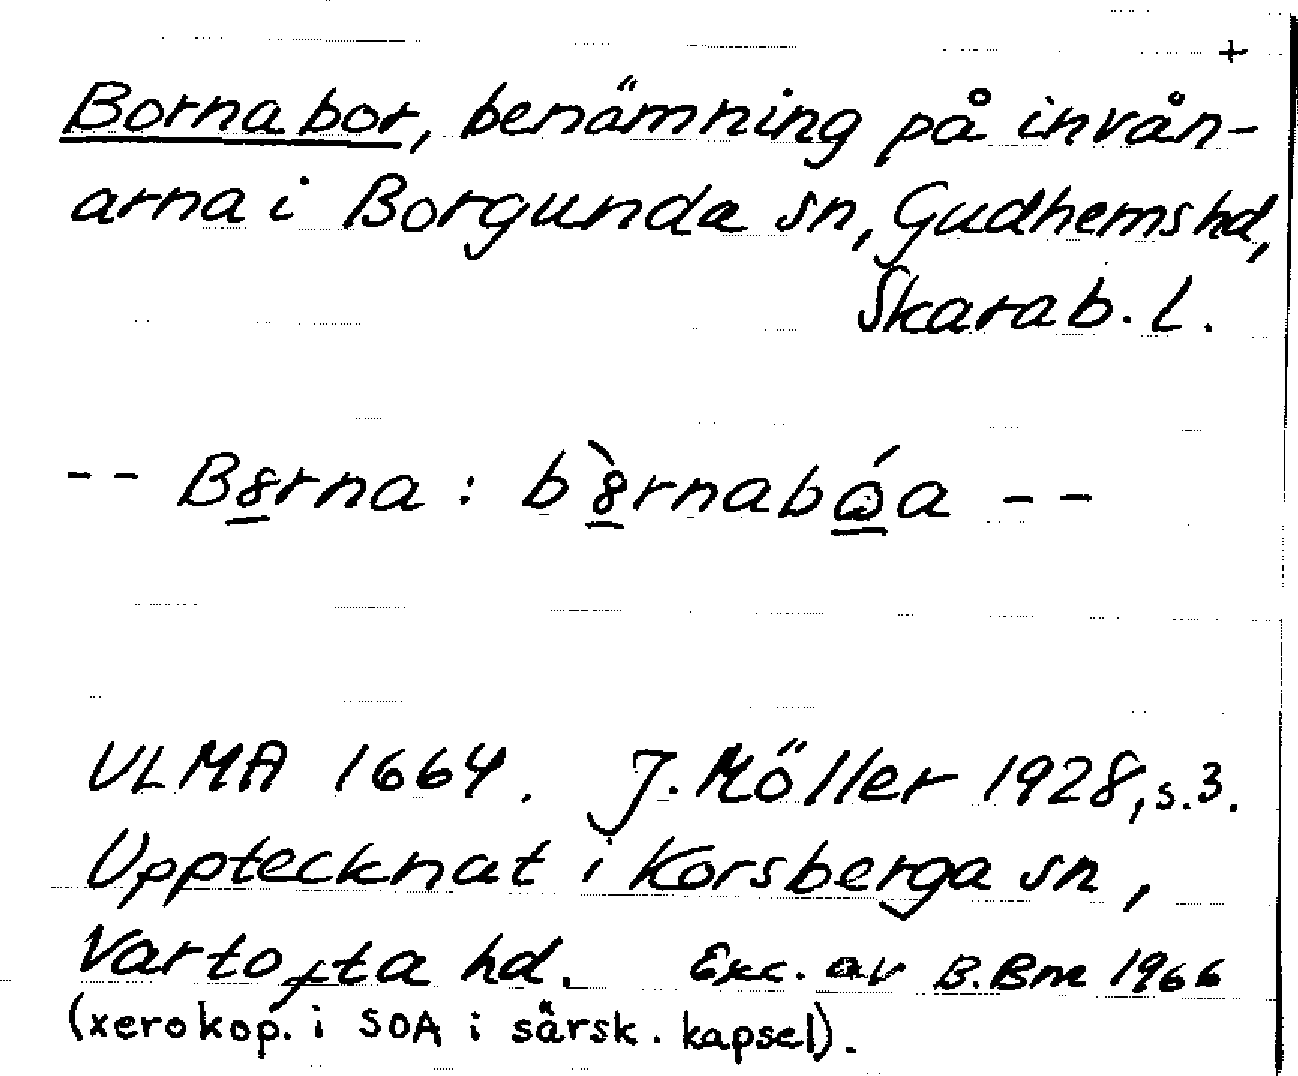 +
Bornabor, benämning på invån-
arna i Borgunda sn, Gudhems hd,
Skarab. l.
-- B8̲rna : b8̲̀rnabǻ̲a --
ULMA 1664. J. Möller 1928, s. 3.
Upptecknat i Korsberga sn,
Vartofta hd. Exc. av B. Bm 1966
(xerokop. i SOA i särsk. kapsel).